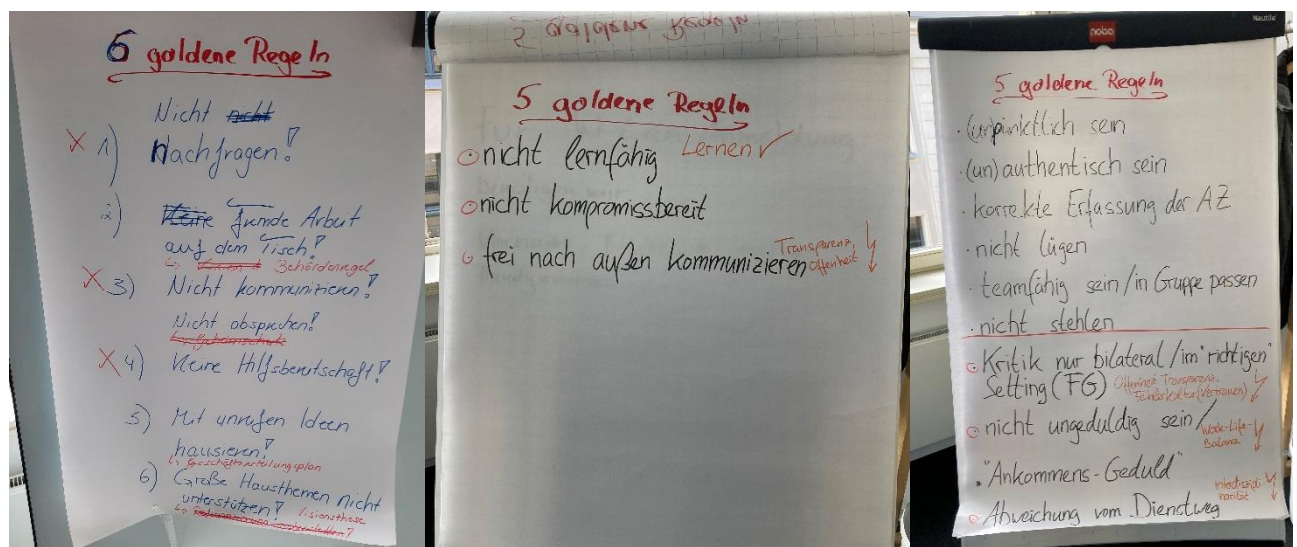 6 goldene Regeln
Nicht nicht
X 1) Nachfragen!
2) Keine fremde Arbeit
auf dem Tisch!
↳ Behördenregel
X 3) Nicht kommunizieren!
Nicht absprechen!
X 4) Keine Hilfsbereitschaft!
5) Mit unreifen Ideen
hausieren!
↳ Geschäftsverteilungsplan
6) Große Hausthemen nicht
unterstützen! Visionsthese
5 goldene Regeln
5 goldene Regeln
nicht lernfähig Lernen ✓
nicht kompromissbereit
frei nach außen kommunizieren Transparenz,
Offenheit
Nautile
nobo
5 goldene Regeln
· (un)pünktlich sein
· (un)authentisch sein
· korrekte Erfassung der AZ
· nicht lügen
· teamfähig sein/in Gruppe passen
· nicht stehlen
Kritik nur bilateral/im "richtigen"
Setting (FG) Offenheit Transparenz,
Fehlerkultur (Vertrauen)
nicht ungeduldig sein/
Work-Life-
Balance
"Ankommens-Geduld"
Abweichung vom Dienstweg